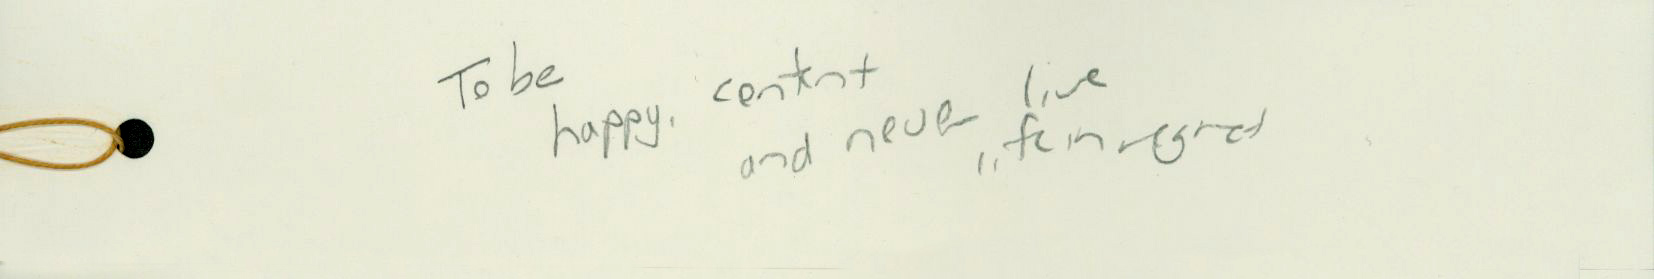 To be
happy, content
and never live
life in regret